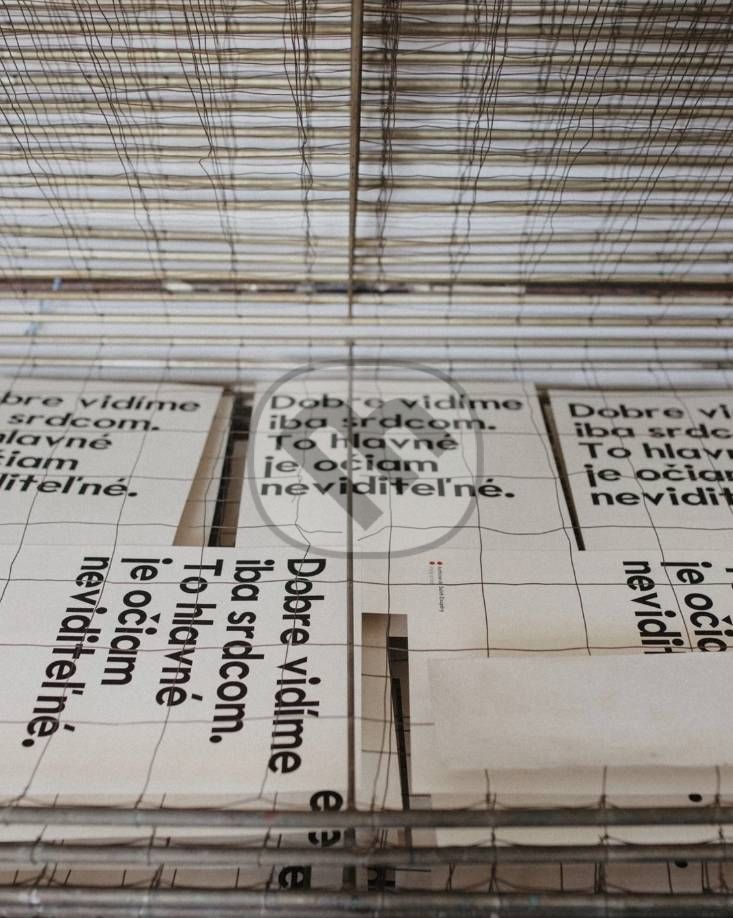 bre vidíme
srdcom.
hlavné
čiam
diteľné.
Dobre vidíme
iba srdcom.
To hlavné
je očiam
neviditeľné.
Dobre vi
iba srdc
To hlavn
je očia
nevidit
Dobre vidíme
iba srdcom.
To hlavné
je očiam
neviditeľné.
je očia
nevidit